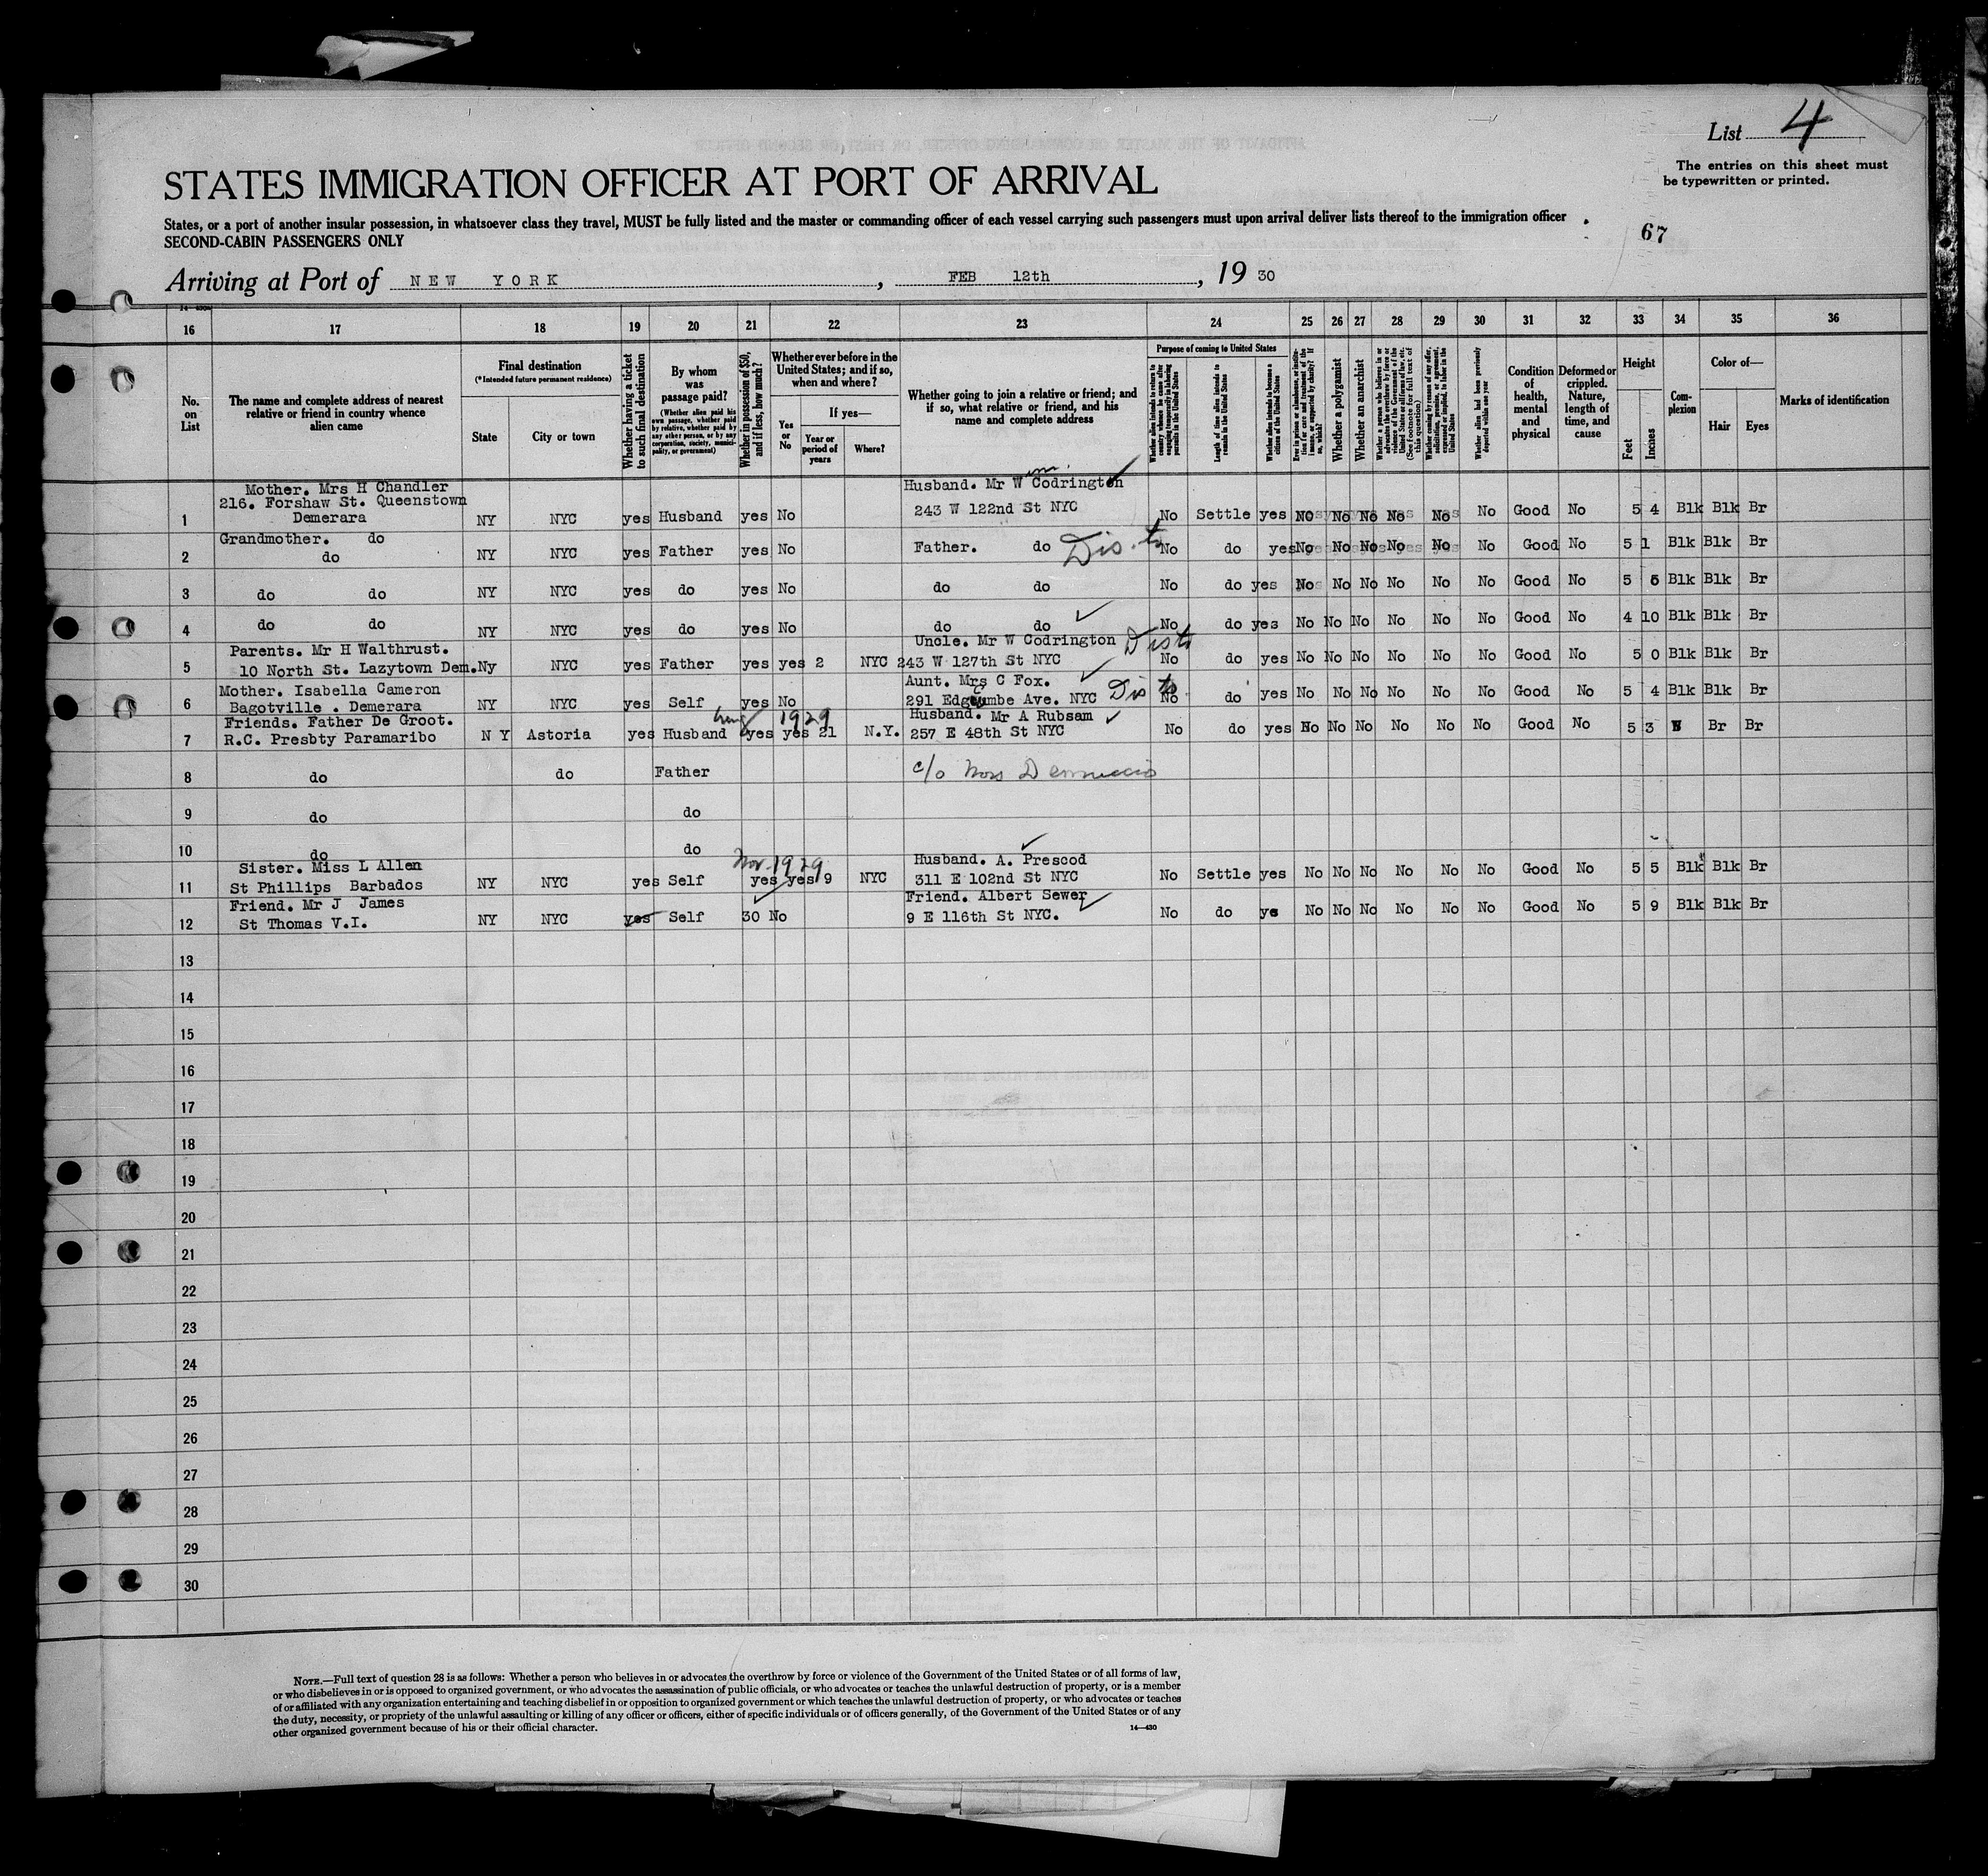 List 4
The entries on this sheet must
be typewritten or printed.
STATES IMMIGRATION OFFICER AT PORT OF ARRIVAL
States, or a port of another insular possession, in whatsoever class they travel, MUST be fully listed and the master or commanding officer of each vessel carrying such passengers must upon arrival deliver lists thereof to the immigration officer
SECOND-CABIN PASSENGERS ONLY
67
Arriving at Port of NEW YORK, FEB 12th, 19 30
16 17 18 19 20 21 22 23 24 25 26 27 28 29 30 31 32 33 34 35 36
No. on List
The name and complete address of nearest relative or friend in country whence alien came
Final destination
(*Intended future permanent residence)
State
City or town
Whether having a ticket to such final destination
By whom was passage paid?
(Whether alien paid his own passage, whether paid by relative, whether paid by any other person, or by any corporation, society, municipality, or government)
Whether in possession of $50, and if less, how much?
Whether ever before in the United States; and if so, when and where?
Yes or No
If yes—
Year or period of years
Where?
Whether going to join a relative or friend; and if so, what relative or friend, and his name and complete address
Purpose of coming to United States
Length of time alien intends to remain in the United States
Whether alien intends to become a citizen of the United States
Whether a polygamist
Whether an anarchist
Whether alien had been previously deported within one year
Condition of health, mental and physical
Deformed or crippled. Nature, length of time, and cause
Height
Feet
Inches
Complexion
Color of—
Hair
Eyes
Marks of identification
Mother. Mrs H Chandler Husband. Mr W Codrington
216. Forshaw St. Queenstown
1 Demerara NY NYC yes Husband yes No 243 W 122nd St NYC No Settle yes No No No No No No Good No 5 4 Blk Blk Br
Grandmother. do
2 do NY NYC yes Father yes No Father. do No do yes No No No No No No Good No 5 1 Blk Blk Br
3 do do NY NYC yes do yes No do do No do yes No No No No No No Good No 5 5 Blk Blk Br
4 do do NY NYC yes do yes No do do No do yes No No No No No No Good No 4 10 Blk Blk Br
Parents. Mr H Walthrust. Uncle. Mr W Codrington
5 10 North St. Lazytown Dem. Ny NYC yes Father yes yes 2 NYC 243 W 127th St NYC No do yes No No No No No No Good No 5 0 Blk Blk Br
Mother. Isabella Cameron Aunt. Mrs C Fox.
6 Bagotville . Demerara NY NYC yes Self yes No 291 Edgcumbe Ave. NYC No do yes No No No No No No Good No 5 4 Blk Blk Br
Friends. Father De Groot. 1929 Husband. Mr A Rubsam
7 R.C. Presbty Paramaribo N Y Astoria yes Husband yes yes 21 N.Y. 257 E 48th St NYC No do yes No No No No No No Good No 5 3 Br Br
8 do do Father c/o
9 do do
10 do do
Sister. Miss L Allen Nov. 1929 Husband. A. Prescod
11 St Phillips Barbados NY NYC yes Self yes yes 9 NYC 311 E 102nd St NYC No Settle yes No No No No No No Good No 5 5 Blk Blk Br
Friend. Mr J James Friend. Albert Sewer
12 St Thomas V.I. NY NYC yes Self 30 No 9 E 116th St NYC. No do ye No No No No No No Good No 5 9 Blk Blk Br
13
14
15
16
17
18
19
20
21
22
23
24
25
26
27
28
29
30
NOTE.—Full text of question 28 is as follows: Whether a person who believes in or advocates the overthrow by force or violence of the Government of the United States or of all forms of law,
or who disbelieves in or is opposed to organized government, or who advocates the assassination of public officials, or who advocates or teaches the unlawful destruction of property, or is a member
of or affiliated with any organization entertaining and teaching disbelief in or opposition to organized government or which teaches the unlawful destruction of property, or who advocates or teaches
the duty, necessity, or propriety of the unlawful assaulting or killing of any officer or officers, either of specific individuals or of officers generally, of the Government of the United States or of any
other organized government because of his or their official character.
14—430